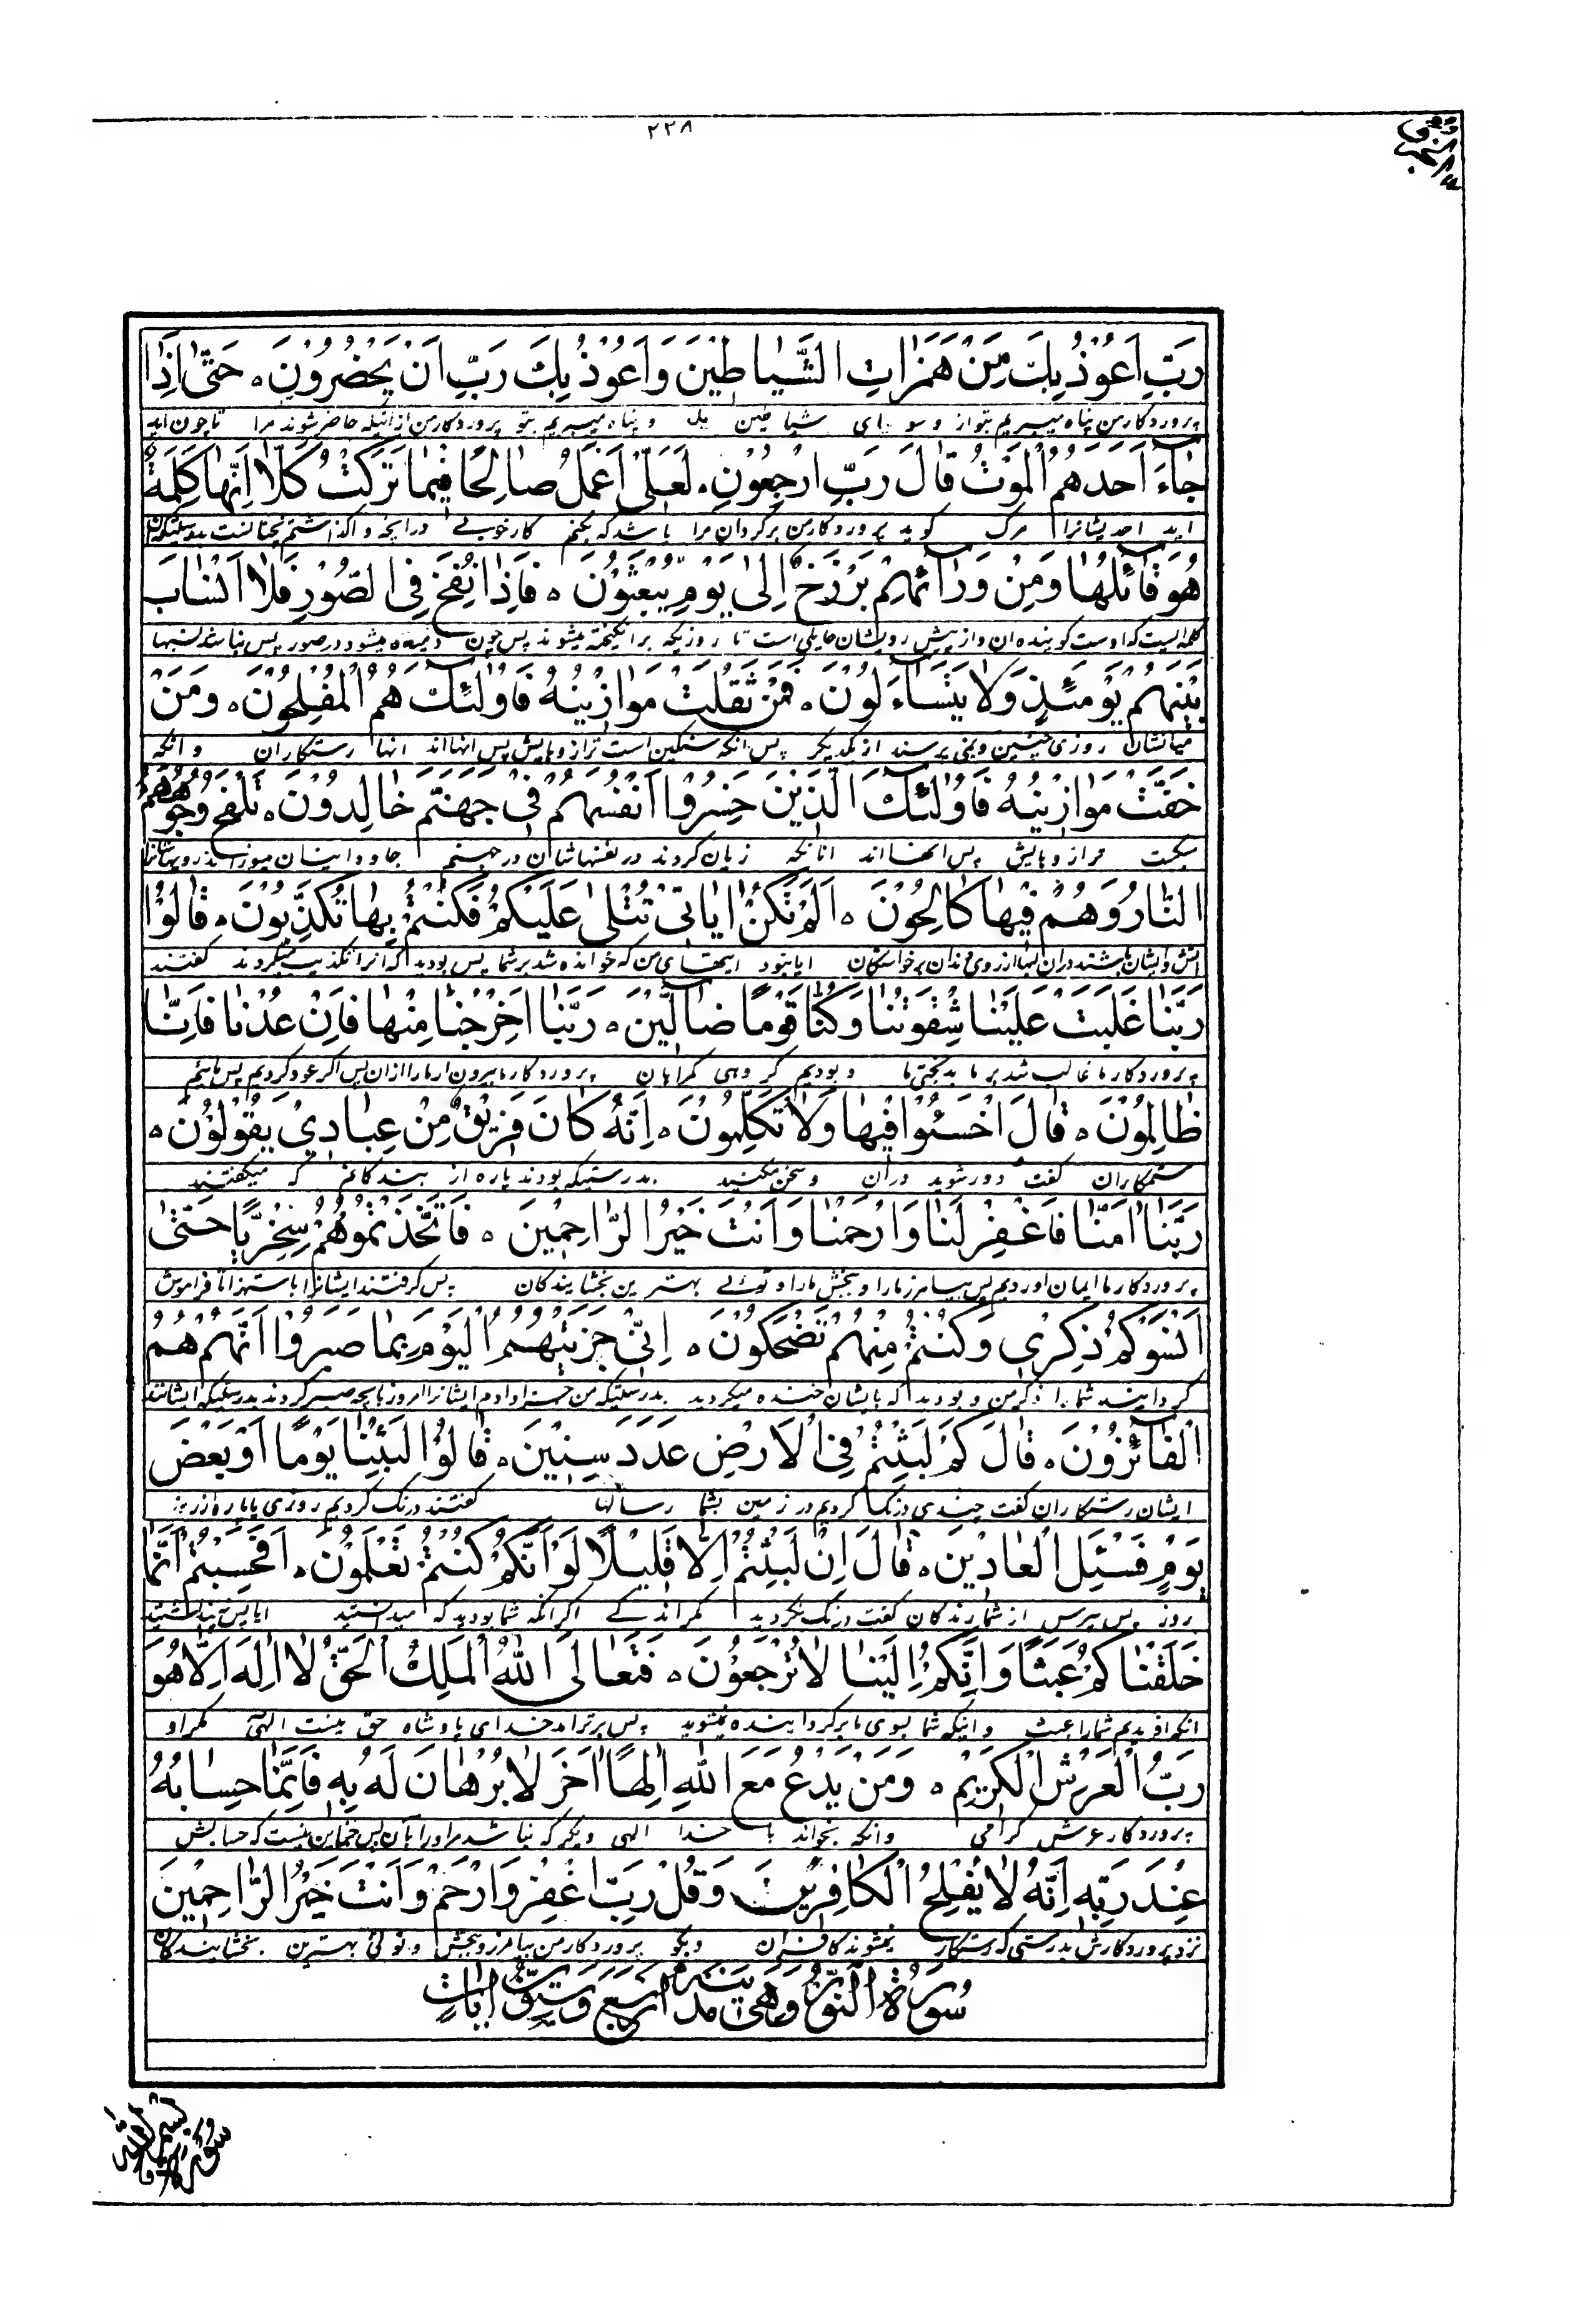 ٢٢٨
رَبِّ اَعُوْذُ بِكَ مِنْ هَمَزٰاتِ الشَّيٰاطِيْنَ وَاَعُوْذُ بِكَ رَبِّ اَنْ يَحْضُرُوْنِ ۝ حَتّٰى اِذٰا
پروردکار من پناه میبریم بتو از وسوسهای شیاطین و پناه میبریم بتو پروردکار من از انیکه حاضر شوند مرا تا چون اید
جٰاءَ اَحَدَهُمُ الْمَوْتُ قٰالَ رَبِّ ارْجِعُوْنِ ۝ لَعَلّى اَعْمَلُ صٰالِحًا فيْمٰا تَرَكْتُ كَلّٰا اِنَّهٰا كَلِمَةٌ
اید احدیشانرا مرک کوید پروردکار من برکردان مرا باشد که بکنم کار خوبی در انچه واکذاشتم نچنانست بدرستیکه ان
هُوَ قٰائِلُهٰا وَمِنْ وَرٰائِهِمْ بَرْزَخٌ اِلٰى يَوْمِ يُبْعَثُوْنَ ۝ فَاِذٰا نُفِخَ فِى الصُّوْرِ فَلٰا اَنْسٰابَ
کلمه ایست که اوست کوینده ان و از پیش رویشان حایلی است تا روزیکه برانکیخته میشوند پس چون دمیده میشود در صور پس نباشد نسبها
بَيْنَهُمْ يَوْمَئِذٍ وَلٰا يَتَسٰاءَلُوْنَ ۝ فَمَنْ ثَقُلَتْ مَوٰازِيْنُهُ فَاُولٰئِكَ هُمُ الْمُفْلِحُوْنَ ۝ وَمَنْ
میانشان روزی چنین و نمی پرسند از یکدیکر پس انکه سنکین است ترازوهایش پس انها اند انها رستکاران و انکه
خَفَّتْ مَوٰازِيْنُهُ فَاُولٰئِكَ الَّذِيْنَ خَسِرُوْا اَنْفُسَهُمْ فىْ جَهَنَّمَ خٰالِدُوْنَ ۝ تَلْفَحُ وُجُوْهَهُمُ
سبکست ترازوهایش پس انها اند انانکه زیان کردند در نفسهاشان در جهنم جاودانیان میوزاند رویهاشانرا
النّٰارُ وَهُمْ فيْهٰا كٰالِحُوْنَ ۝ اَلَمْ تَكُنْ اٰيٰاتىْ تُتْلٰى عَلَيْكُمْ فَكُنْتُمْ بِهٰا تُكَذِّبُوْنَ ۝ قٰالُوْا
ایا نبود ایتهای من که خوانده شد بر شما پس بودید که انرا تکذیب میکردند کفتند
رَبَّنٰا غَلَبَتْ عَلَيْنٰا شِقْوَتُنٰا وَكُنّٰا قَوْمًا ضٰالّيْنَ ۝ رَبَّنٰا اَخْرِجْنٰا مِنْهٰا فَاِنْ عُدْنٰا فَاِنّٰا
پروردکار ما غالب شد بر ما بدبختی ما و بودیم کروهی کمراهان پروردکار ما بیرون ار ما را از ان پس اکر عود کردیم پس مائیم
ظٰالِمُوْنَ ۝ قٰالَ اخْسَئُوْا فيْهٰا وَلٰا تُكَلِّمُوْنِ ۝ اِنَّهُ كٰانَ فَرِيْقٌ مِنْ عِبٰادىْ يَقُوْلُوْنَ ۝
ستمکاران کفت دور شوید در ان و سخن مکنید بدرستیکه بودند پاره از بندکانم که میکفتند
رَبَّنٰا اٰمَنّٰا فَاغْفِرْ لَنٰا وَارْحَمْنٰا وَاَنْتَ خَيْرُ الرّٰاحِمِيْنَ ۝ فَاتَّخَذْتُمُوْهُمْ سِخْرِيًّا حَتّٰى
پروردکار ما ایمان اوردیم پس بیامرز ما را و ببخش ما را و توئی بهترین بخشایندکان پس کرفتند ایشانرا باستهزا تا فراموش
اَنْسَوْكُمْ ذِكْرى وَكُنْتُمْ مِنْهُمْ تَضْحَكُوْنَ ۝ اِنّىْ جَزَيْتُهُمُ الْيَوْمَ بِمٰا صَبَرُوْا اَنَّهُمْ هُمُ
کردانیند شما را ذکر من و بودید که بایشان خنده میکردید بدرستیکه من جزا دادم ایشانرا امروز بانچه صبر کردند بدرستیکه ایشانند
الْفٰائِزُوْنَ ۝ قٰالَ كَمْ لَبِثْتُمْ فِى الْاَرْضِ عَدَدَ سِنِيْنَ ۝ قٰالُوْا لَبِثْنٰا يَوْمًا اَوْ بَعْضَ
ایشان رستکاران کفت چندی درنک کردیم در زمین بشمار سالها کفتند درنک کردیم روزی یا پاره از روز
يَوْمٍ فَسْئَلِ الْعٰادّيْنَ ۝ قٰالَ اِنْ لَبِثْتُمْ اِلّٰا قَليْلًا لَوْ اَنَّكُمْ كُنْتُمْ تَعْلَمُوْنَ ۝ اَفَحَسِبْتُمْ اَنَّمٰا
روز پس بپرس از شمارندکان کفت درنک نکردید مکر اندکی اکر انکه شما بودید که میدانستید ایا پس پنداشتید
خَلَقْنٰاكُمْ عَبَثًا وَاَنَّكُمْ اِلَيْنٰا لٰا تُرْجَعُوْنَ ۝ فَتَعٰالَى اللّٰهُ الْمَلِكُ الْحَقُّ لٰا اِلٰهَ اِلّٰا هُوَ
انکه افریدیم شما را عبث و اینکه شما بسوی ما برکردانیده نمیشوید پس برتر امد خدای پادشاه حق نیست الهی مکر او
رَبُّ الْعَرْشِ الْكَرِيْمِ ۝ وَمَنْ يَدْعُ مَعَ اللّٰهِ اِلٰهًا اٰخَرَ لٰا بُرْهٰانَ لَهُ بِهِ فَاِنَّمٰا حِسٰابُهُ
پروردکار عرش کرامی و انکه بخواند با خدا الهی دیکر که نباشد مر او را بان پس جز این نیست که حسابش
عِنْدَ رَبِّهِ اِنَّهُ لٰا يُفْلِحُ الْكٰافِرُيْنَ وَقُلْ رَبِّ اغْفِرْ وَارْحَمْ وَاَنْتَ خَيْرُ الرّٰاحِمِيْنَ
نزد پروردکارش بدرستی که رستکار نمیشوند کافران و بکو پروردکار من بیامرز و ببخش و توئی بهترین بخشایندکان
سُوْرَةُ النُّوْرِ وَهِىَ مَدَنِيَّةٌ اَرْبَعٌ وَسِتُّوْنَ اٰيٰاتٍ